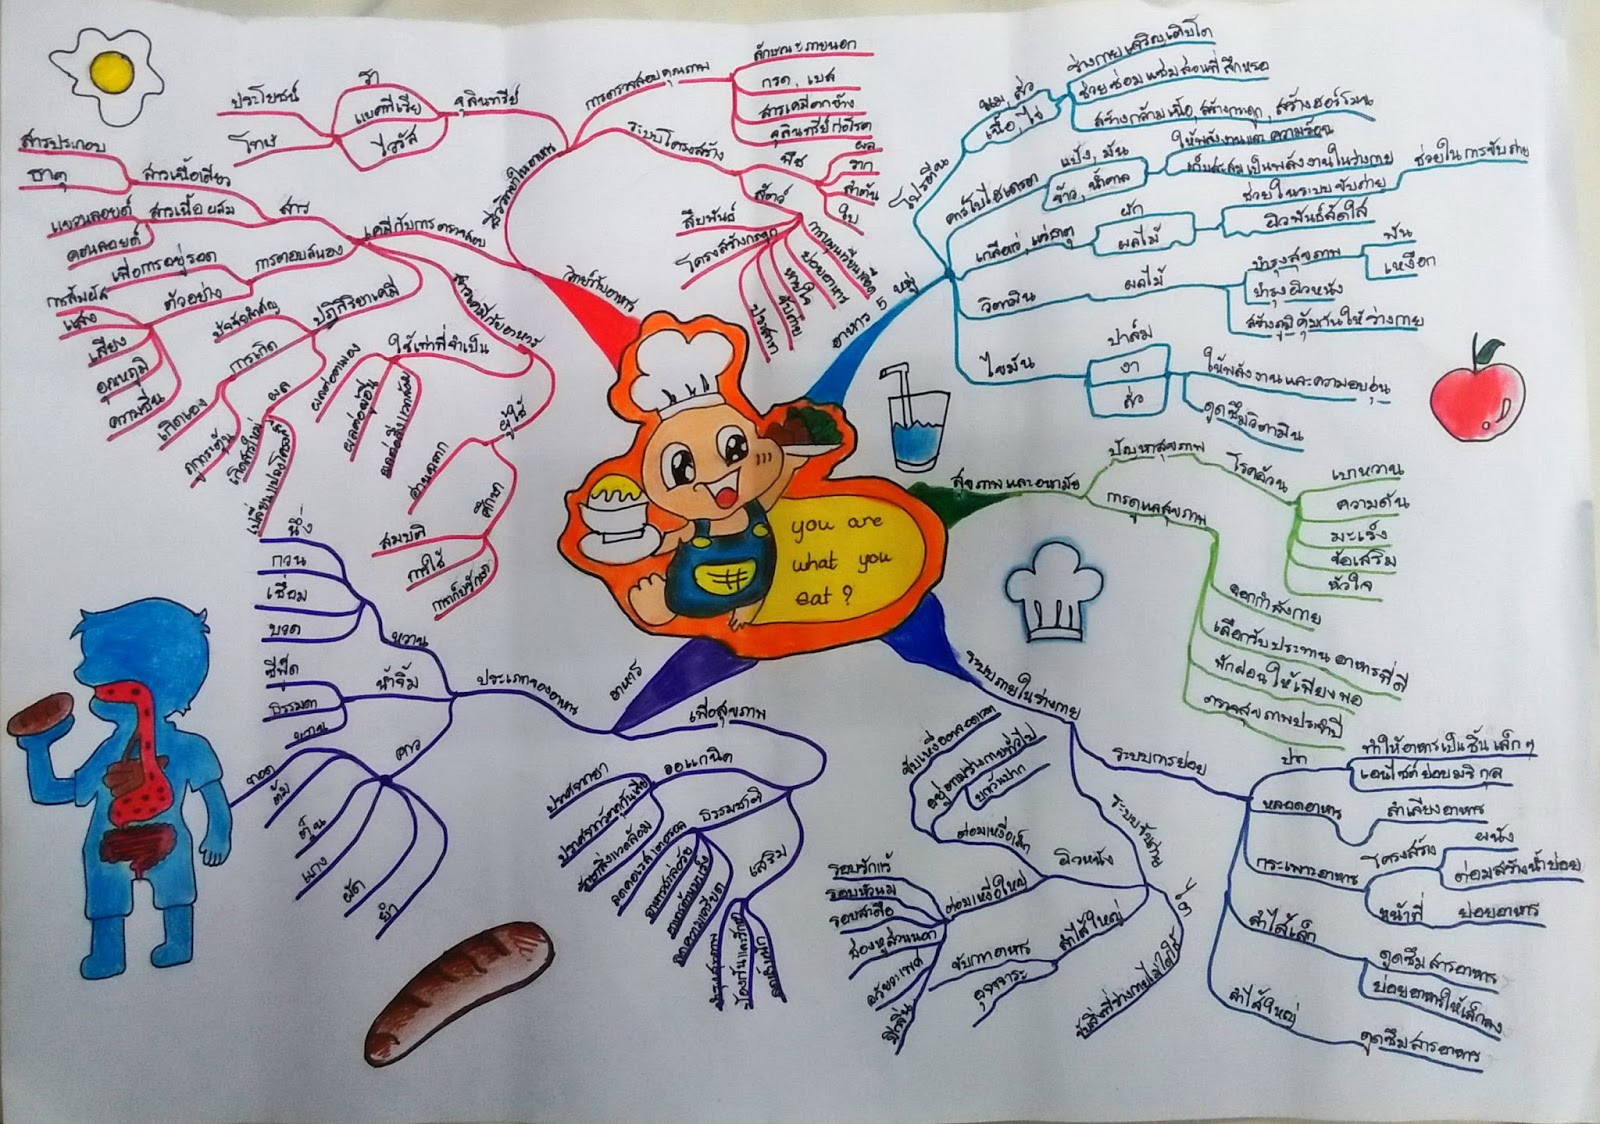 you are
what you
eat?
วิทย์กับอาหาร
ชีววิทยาในอาหาร
จุลินทรีย์
รา
แบคทีเรีย
ไวรัส
ประโยชน์
โทษ
การตรวจสอบคุณภาพ
ลักษณะภายนอก
กรด, เบส
สารเคมีตกค้าง
จุลินทรีย์ก่อโรค
ระบบโครงสร้าง
พืช
ผล
ราก
ลำต้น
ใบ
สัตว์
สืบพันธุ์
โครงสร้างกระดูก
ประสาท
ขับถ่าย
หายใจ
ย่อยอาหาร
การหมุนเวียนเลือด
เคมีกับการตรวจสอบ
สาร
สารเนื้อเดียว
สารประกอบ
ธาตุ
สารเนื้อผสม
แขวนลอยด์
คอลลอยด์
การตอบสนอง
เพื่อการอยู่รอด
ตัวอย่าง
การสัมผัส
แสง
เสียง
อุณหภูมิ
ความชื้น
ปฏิกิริยาเคมี
ปัจจัยสำคัญ
การเกิด
เกิดเอง
ถูกกระตุ้น
ผล
เกิดสารใหม่
สารเคมีกับอาหาร
ใช้เท่าที่จำเป็น
ผลต่อตนเอง
ผลต่อผู้อื่น
ผลต่อสิ่งแวดล้อม
ผู้ใช้
อ่านฉลาก
ศึกษา
สมบัติ
การใช้
การเก็บรักษา
อาหาร 5 หมู่
โปรตีน
นม, ถั่ว
เนื้อ, ไข่
ร่างกายเจริญเติบโต
ช่วยซ่อมแซมส่วนที่สึกหรอ
สร้างกล้ามเนื้อ, สร้างกระดูก, สร้างฮอร์โมน
คาร์โบไฮเดรต
แป้ง, มัน
ข้าว, น้ำตาล
ให้พลังงานและความร้อน
เก็บสะสมเป็นพลังงานในร่างกาย
เกลือแร่, แร่ธาตุ
ผัก
ผลไม้
ช่วยในระบบขับถ่าย
ช่วยในการขับถ่าย
ผิวพันธ์สดใส
วิตามิน
ผลไม้
บำรุงสุขภาพ
ฟัน
เหงือก
บำรุงผิวหนัง
สร้างภูมิคุ้มกันให้ร่างกาย
ไขมัน
ปาล์ม
งา
ถั่ว
ให้พลังงานและความอบอุ่น
ดูดซึมวิตามิน
สุขภาพและอนามัย
ปัญหาสุขภาพ
โรคอ้วน
เบาหวาน
ความดัน
มะเร็ง
ข้อเสริม
หัวใจ
การดูแลสุขภาพ
ออกกำลังกาย
เลือกรับประทานอาหารที่ดี
พักผ่อนให้เพียงพอ
ตรวจสุขภาพประจำปี
ระบบภายในร่างกาย
ระบบการย่อย
ปาก
ทำให้อาหารเป็นชิ้นเล็กๆ
เอนไซด์ย่อยมริกุล
หลอดอาหาร
ลำเลียงอาหาร
กระเพาะอาหาร
โครงสร้าง
ผนัง
ต่อมสร้างน้ำย่อย
หน้าที่
ย่อยอาหาร
ลำไส้เล็ก
ดูดซึมสารอาหาร
ย่อยอาหารให้เล็กลง
ลำไส้ใหญ่
ดูดซึมสารอาหาร
ระบบขับถ่าย
ผิวหนัง
ต่อมเหงื่อเล็ก
ขับเหงื่อตลอดเวลา
อยู่ตามร่างกายทั่วไป
ยกเว้นปาก
ต่อมเหงื่อใหญ่
รอบรักแร้
รอบหัวนม
รอบสะดือ
ช่องหูส่วนนอก
อวัยวะเพศ
มีกลิ่น
ลำไส้ใหญ่
ขับกากอาหาร
อุจจาระ
ไต
ขับสิ่งที่ร่างกายไม่ใช้
อาหาร
ประเภทของอาหาร
หวาน
นึ่ง
กวน
เชื่อม
บวด
น้ำจิ้ม
ซีฟู๊ด
ธรรมดา
หวาน
คาว
ทอด
ต้ม
ตุ๋น
แกง
ผัด
ยำ
เพื่อสุขภาพ
ออแกนิค
ปราศจากยา
รักษาสิ่งแวดล้อม
ธรรมชาติ
ลดคอเรสเตอรอล
ลดความเครียด
เสริม
บำรุงสุขภาพ
ป้องกันและรักษา